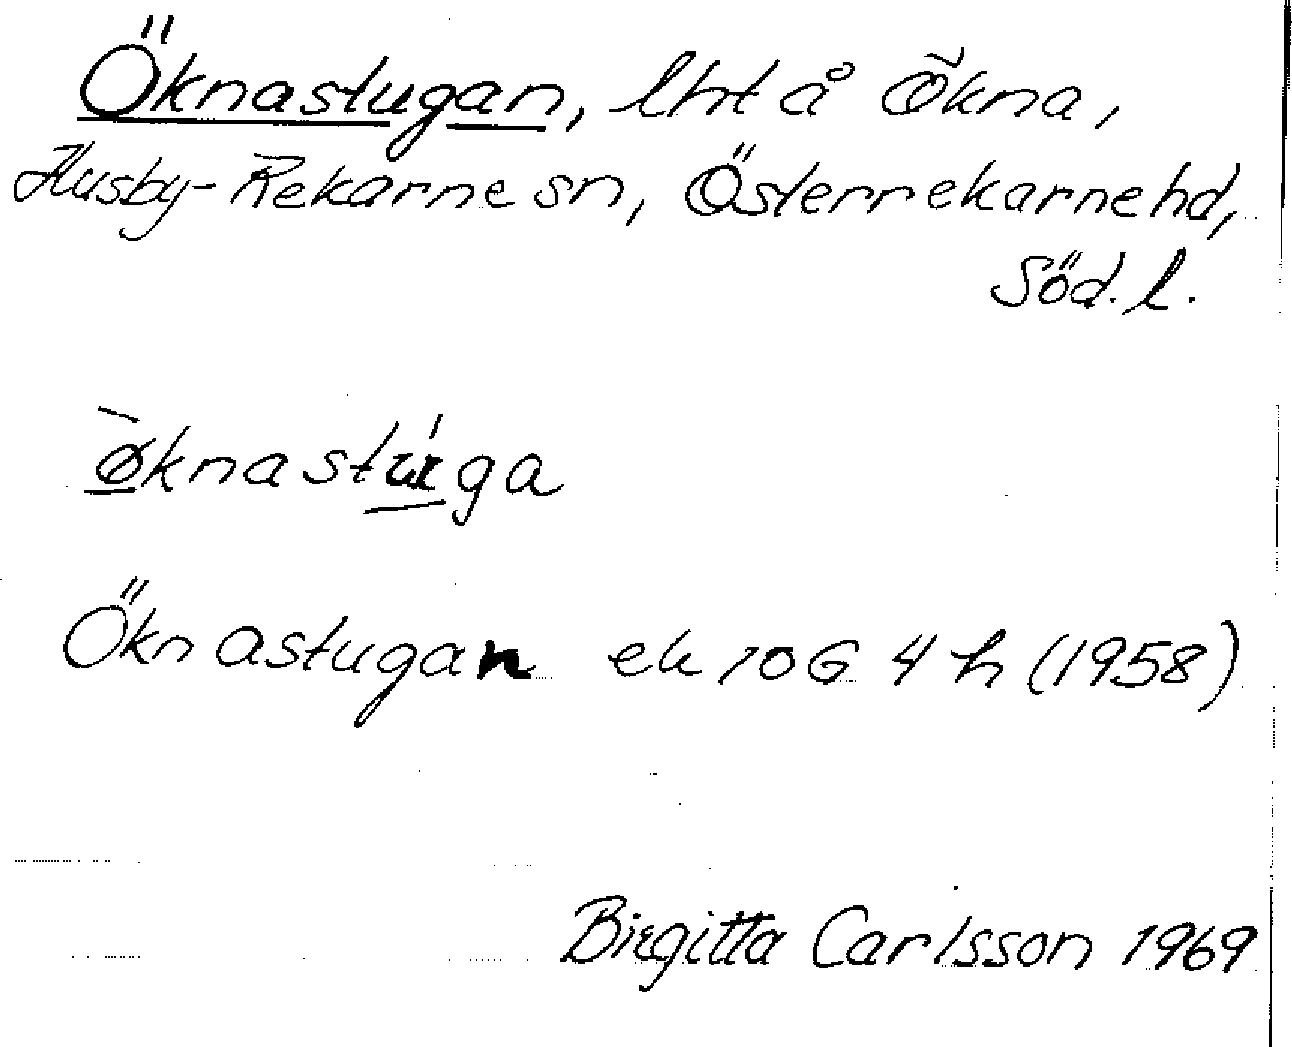 Öknastugan, lht å Ökna,
Husby-Rekarne sn, Österrekarne hd,
Söd. l.
ø̀knastúga
Öknastugan ek 10G 4 h (1958)
Birgitta Carlsson 1969